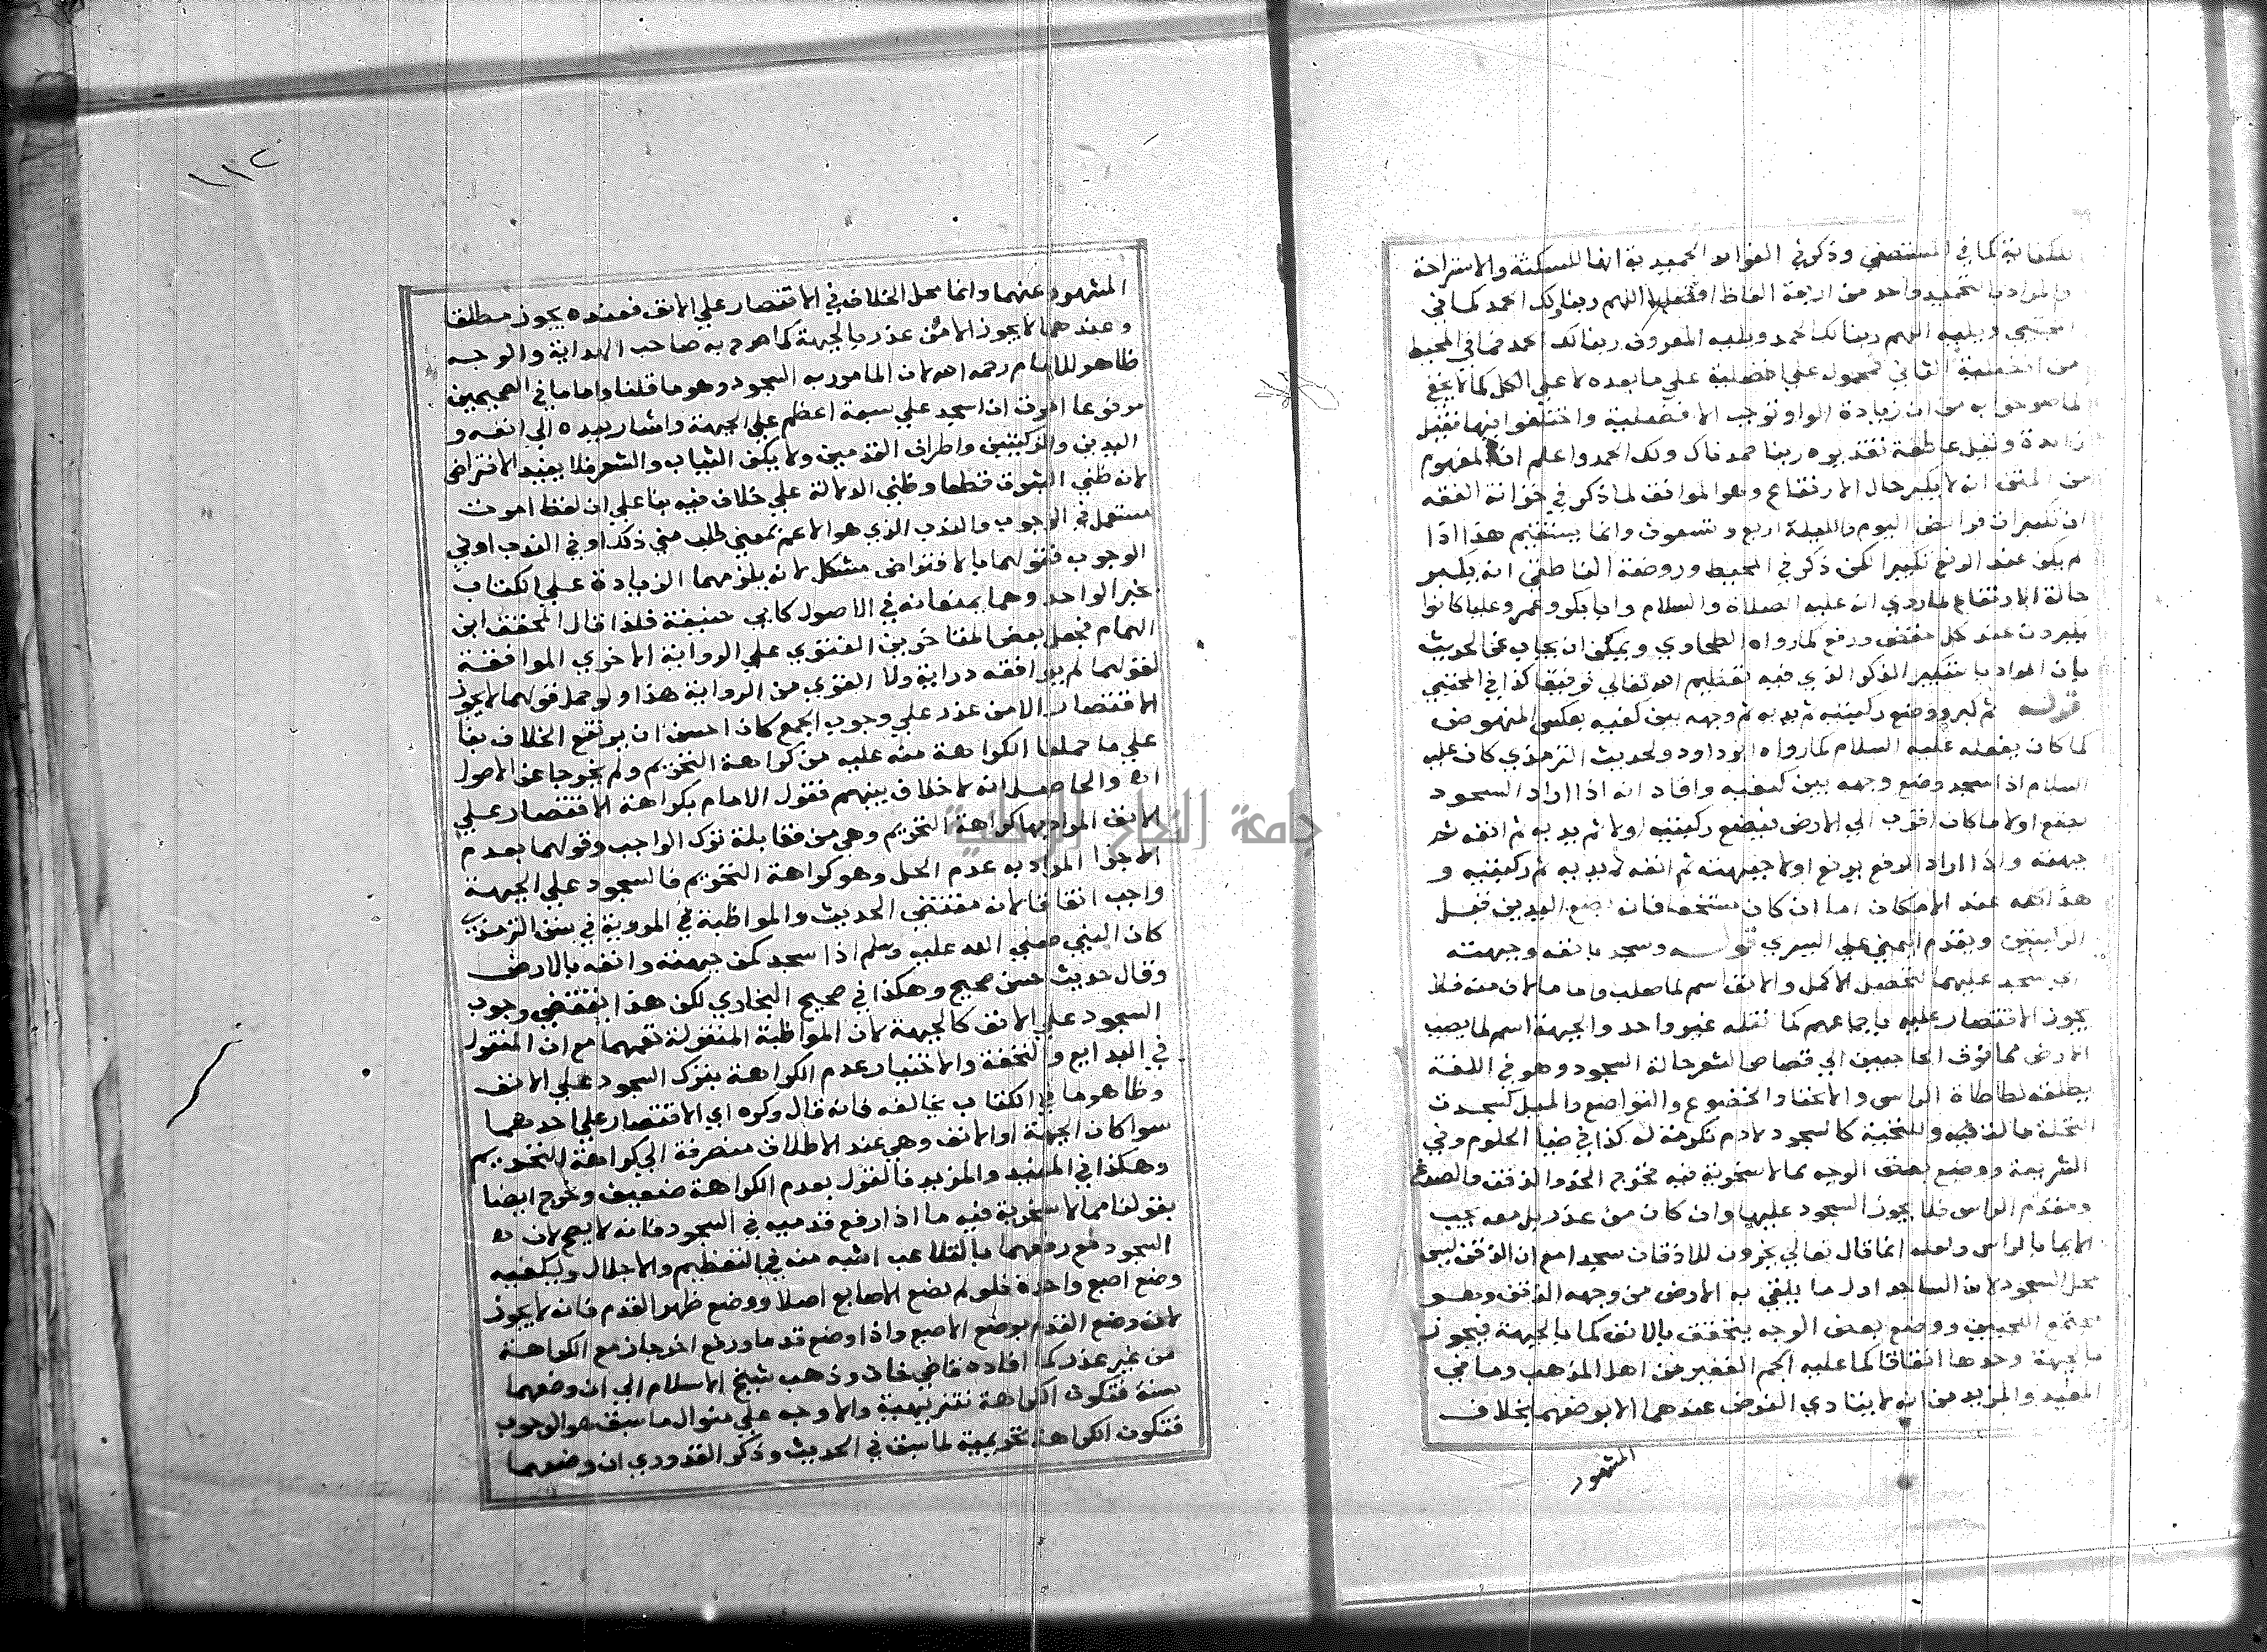 للكناية كما في المستصفى وذكر في الفوائد الحميدية انها للسكتة والاستراحة
والمراد بالتحميد واحد من اربعة الفاظ افضلها اللهم ربنا ولك الحمد كما في
المجتبى ويليه اللهم ربنا لك الحمد ويليه المعروف ربنا لك الحمد فما في المحيط
من افضلية الثاني فمحمول على افضلية على ما بعده لا على الكل كما لا يخفى
لما صرحوا به من ان زيادة الواو توجب الافضلية واختلفوا فيها فقيل
زائدة وقيل عاطفة تقديره ربنا حمدناك ولك الحمد واعلم ان المفهوم
من المتن انه لا يكبر حال الارتفاع وهو الموافق لما ذكر في خزانة الفقه
ان تكبيرات فرائض اليوم والليلة اربع وتسعون وانما يستقيم هذا اذا
لم يكن عند الرفع تكبيرا لكن ذكر في المحيط وروضة الناطفي انه يكبر
حالة الارتفاع لما روي انه عليه الصلاة والسلام وابا بكر وعمر وعليا كانوا
يكبرون عند كل خفض ورفع كما رواه الطحاوي ويمكن ان يجاب عن الحديث
بان المراد بالتكبير الذكر الذي فيه تعظيم الله تعالى توفيقا كذا في المجتبى
قوله ثم كبر ووضع ركبتيه ثم يديه ثم وجهه بين كفيه بعكس النهوض
كما كان يفعله عليه السلام كما رواه ابو داود ولحديث الترمذي كان عليه
السلام اذا سجد وضع وجهه بين كفيه وافاد انه اذا اراد السجود
يضع اولا ما كان اقرب الى الارض فيضع ركبتيه اولا ثم يديه ثم انفه ثم
جبهته واذا اراد الرفع يرفع اولا جبهته ثم انفه ثم يديه ثم ركبتيه و
هذا كله عند الامكان اما ان كان متخففا فانه يضع اليدين قبل
الركبتين ويقدم اليمنى على اليسرى قوله وسجد بانفه وجبهته
اي سجد عليهما لتحصيل الاكمل والانف اسم لما صلب واما ما لان منه فلا
يجوز الاقتصار عليه باجماعهم كما نقله غير واحد والجبهة اسم لما يصيب
الارض مما فوق الحاجبين الى قصاص الشعر حالة السجود وهو في اللغة
يطلق لطأطأة الراس والانحناء والخضوع والتواضع والميل كسجدت
النخلة مالت فيه وللتحية كالسجود لادم تكرمة له كذا في ضيا الحلوم وفي
الشريعة ووضع بعض الوجه مما لا سخرية فيه فخرج الخد والذقن والصدغ
ومقدم الراس فلا يجوز السجود عليها وان كان من عذر بل معه يجب
الايما بالراس ولعله انما قال تعالى يخرون للاذقان سجدا مع ان الذقن ليس
محل السجود لان الساجد اول ما يلقى به الارض من وجهه الذقن وهو
مجتمع اللحيين ووضع بعض الوجه يتحقق بالانف كما بالجبهة فيجوز
بالجبهة وحدها اتفاقا كما عليه الجم الغفير من اهل المذهب وما في
المفيد والمزيد من انه لا يتادى الفرض عندهما الا بوضعهما بخلاف
المشهور
المشهور عنهما وانما محل الخلاف في الاقتصار على الانف فعنده يجوز مطلقا
وعندهما لا يجوز الا من عذر بالجبهة كما صرح به صاحب الهداية والوجه
ظاهر للامام رحمه الله لان المامور به السجود وهو ما قلنا واما ما في الصحيحين
مرفوعا امرت ان اسجد على سبعة اعظم على الجبهة واشار بيده الى انفه و
اليدين والركبتين واطراف القدمين ولا يكف الثياب والشعر فلا يفيد الافتراض
لانه ظني الثبوت قطعا وظني الدلالة على خلاف فيه بنا على ان لفظ امرت
مستعمل في الوجوب والندب الذي هو الاعم بمعنى طلب مني ذلك او في الندب او في
الوجوب فقولهما بالافتراض مشكل لانه يلزمهما الزيادة على الكتاب
بخبر الواحد وهما يمنعانه في الاصول كابي حنيفة فلذا قال المحقق ابن
الهمام فجعل بعض المتاخرين الفتوى على الرواية الاخرى الموافقة
لقولهما لم يوافقه دراية ولا القوي من الرواية هذا ولو حمل قولهما لا يجوز
الاقتصار الا من عذر على وجوب الجمع كان احسن ان يرتفع الخلاف بنا
على ما حملنا الكراهة منه عليه من كراهة التحريم ولم يخرجا عن الاصول
اه والحاصل انه لا خلاف بينهم فقول الامام بكراهة الاقتصار على
الانف المراد بها كراهة التحريم وهي من مقابلة ترك الواجب وقولهما بعدم
الاجزا المراد به عدم الحل وهو كراهة التحريم فالسجود على الجبهة
واجب اتفاقا لانه مقتضى الحديث والمواظبة في المروية في سنن الترمذي
كان النبي صلى الله عليه وسلم اذا سجد مكن جبهته وانفه بالارض
وقال حديث حسن صحيح وهكذا في صحيح البخاري لكن هذا يقتضي وجوب
السجود على الانف كالجبهة لان المواظبة المنقولة تعمهما مع ان المنقول
في البدايع والتحفة والاختيار عدم الكراهة بترك السجود على الانف
وظاهر ما في الكتاب يخالفه فانه قال وكره اي الاقتصار على احدهما
سوا كان الجبهة او الانف وهي عند الاطلاق منصرفة الى كراهة التحريم
وهكذا في المفيد والمزيد فالقول بعدم الكراهة ضعيف وخرج ايضا
بقولنا مما لا سخرية فيه ما اذا رفع قدميه في السجود فانه لا يصح لان
السجود مع رفعهما بالتلاعب اشبه منه في التعظيم والاجلال ويكفيه
وضع اصبع واحدة فلو لم يضع الاصابع اصلا ووضع ظهر القدم فانه لا يجوز
لان وضع القدم بوضع الاصبع واذا وضع قدما ورفع اخر جاز مع الكراهة
من غير عذر كما افاده قاضي خان وذهب شيخ الاسلام الى ان وضعهما
سنة فتكون الكراهة تنزيهية والاوجه على منوال ما سبق هو الوجوب
فتكون الكراهة تحريمية لما سبق في الحديث وذكر القدوري ان وضعهما
١١٢
جامعة النجاح الوطنية